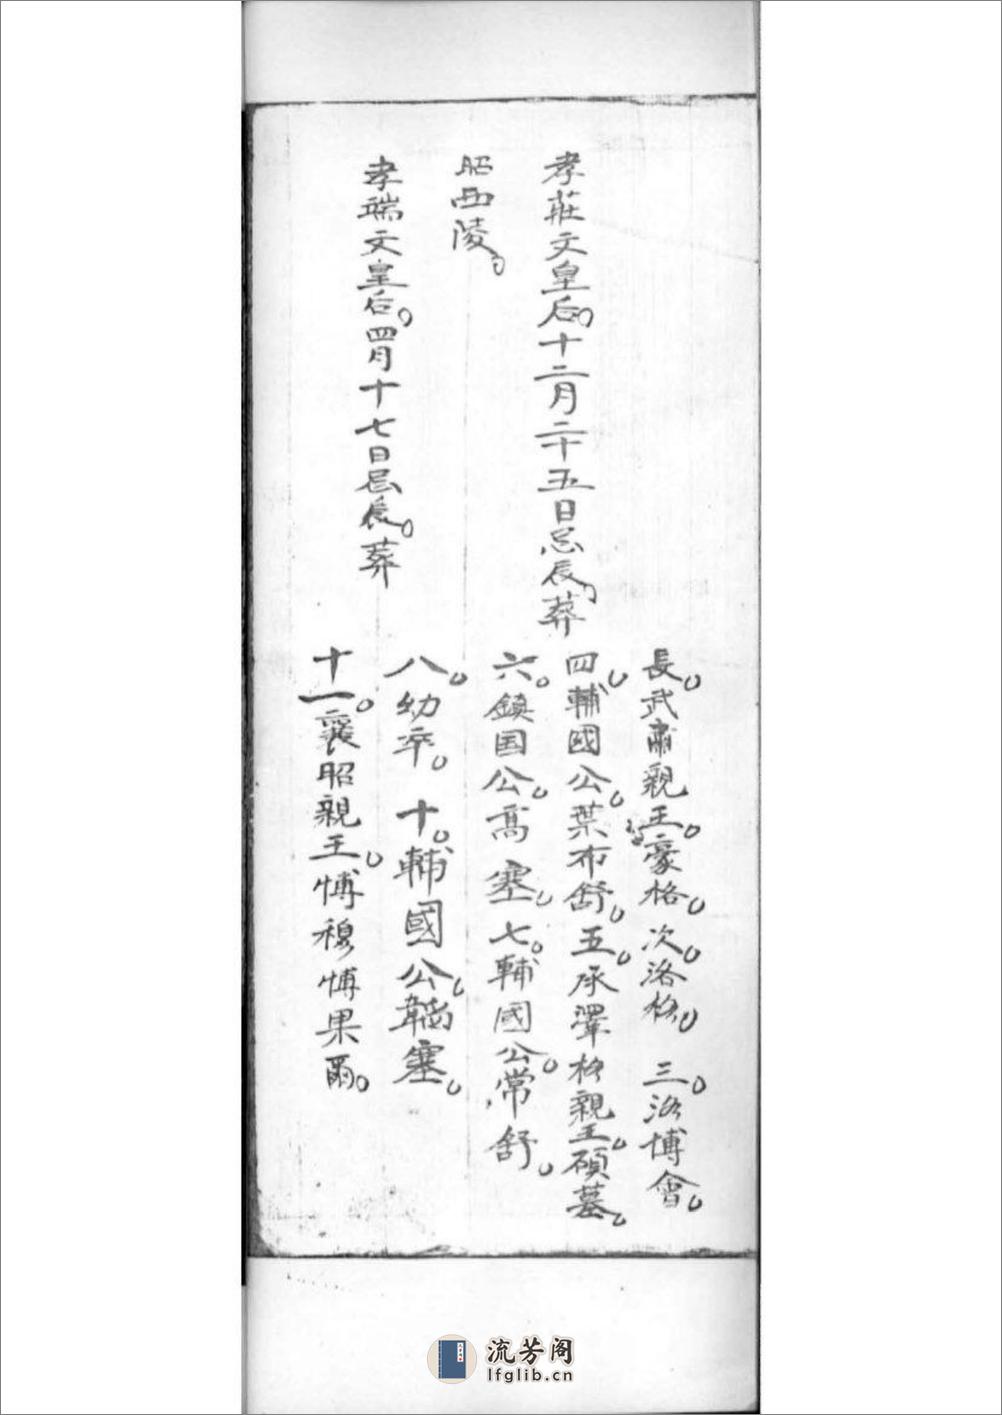 孝莊文皇后。十二月二十五日忌辰。葬
昭西陵。
孝端文皇后。四月十七日忌辰。葬
長。武肅親王。豪格。次。洛格。三。洛博會。
四。輔國公。葉布舒。五。承澤格親王。碩塞。
六。鎮国公。高塞。七。輔國公。常舒。
八。幼卒。十。輔國公。韜塞。
十一。襄昭親王。愽穆愽果爾。
流芳阁
lfglib.cn